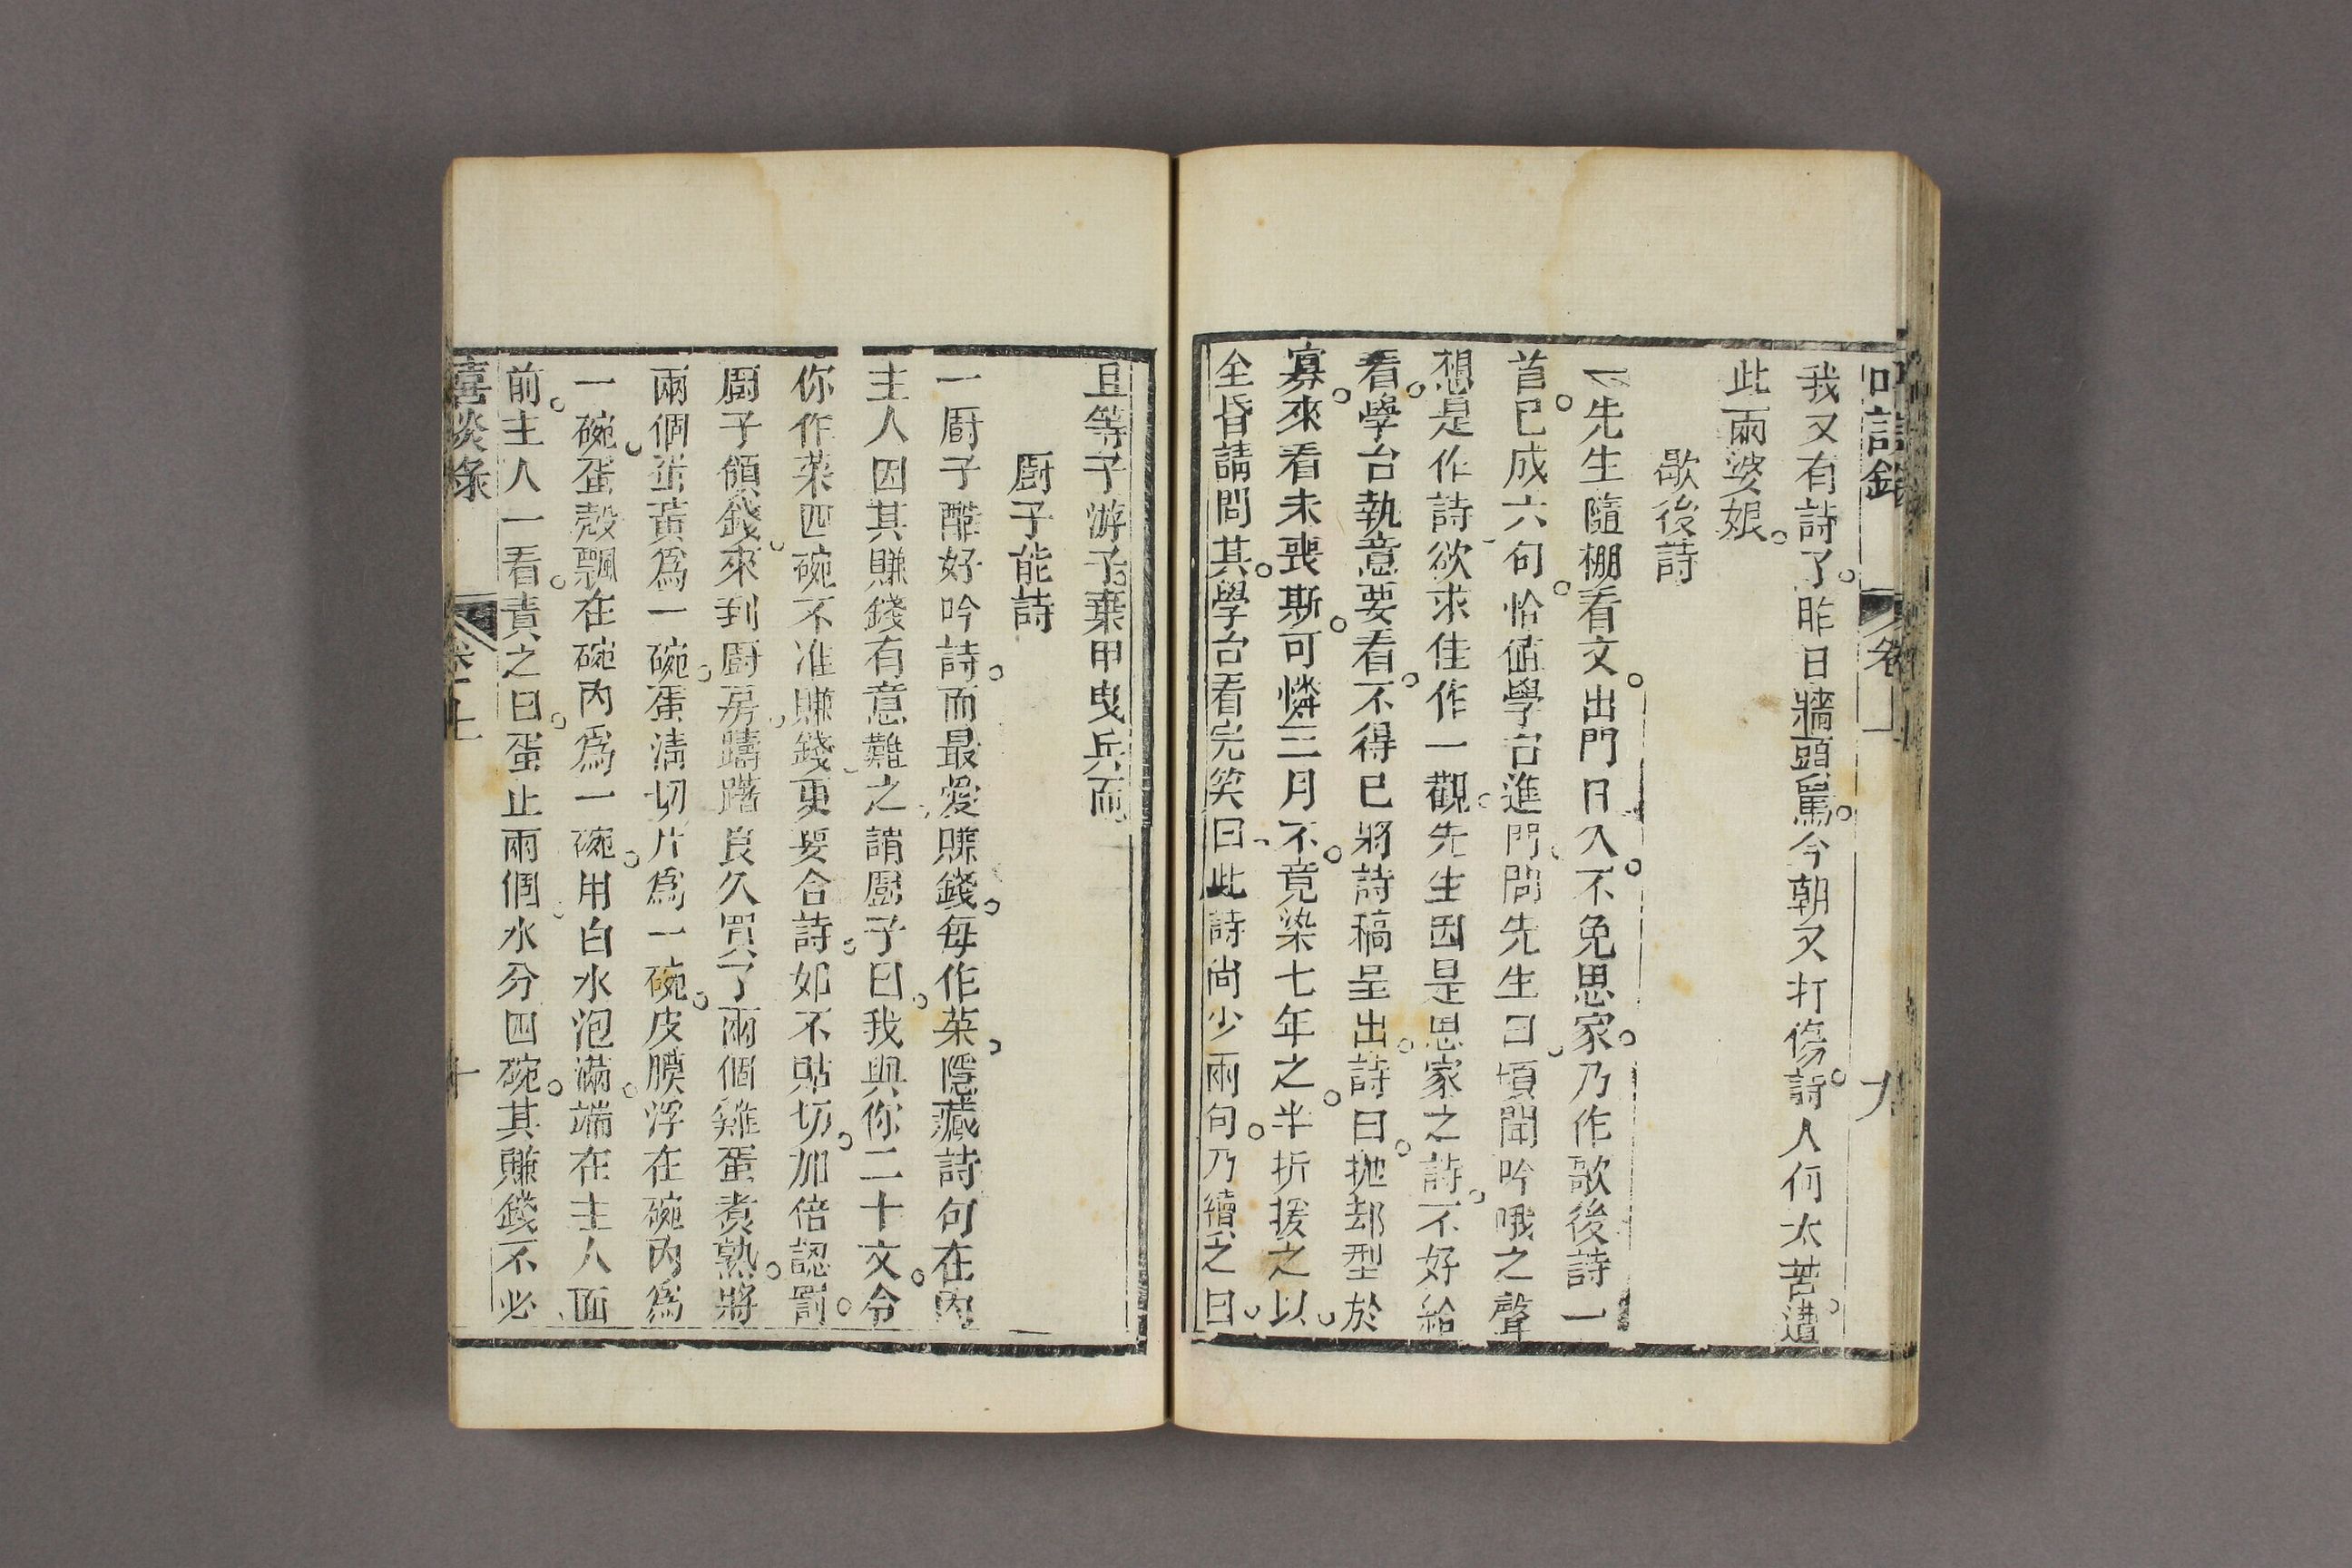 我又有詩了昨日牆頭罵今朝又打傷詩人何太苦遭
此兩婆娘
歇後詩
一先生隨棚看文出門日久不免思家乃作歇後詩一
首已成六句恰值學台進門問先生曰頃聞吟哦之聲
想是作詩欲求佳作一觀先生因是思家之詩不好給
看學台執意要看不得已將詩稿呈出詩曰拋却刑於
寡來看未喪斯可憐三月不竟染七年之半折援之以
全昏請問其學台看完笑曰此詩尚少兩句乃續之曰
且等子游子棄甲曳兵而
厨子能詩
一厨子酷好吟詩而最愛賺錢每作菜隱藏詩句在內
主人因其賺錢有意難之謂厨子曰我與你二十文令
你作菜四碗不准賺錢更要合詩如不貼切加倍認罰
厨子領錢來到厨房躊躇良久買了兩個雞蛋煮熟將
兩個蛋黃爲一碗蛋清切片爲一碗皮膜浮在碗內爲
一碗蛋殼飄在碗內爲一碗用白水泡滿端在主人面
前主人一看責之曰蛋止兩個水分四碗其賺錢不必
喜談錄 卷上 十